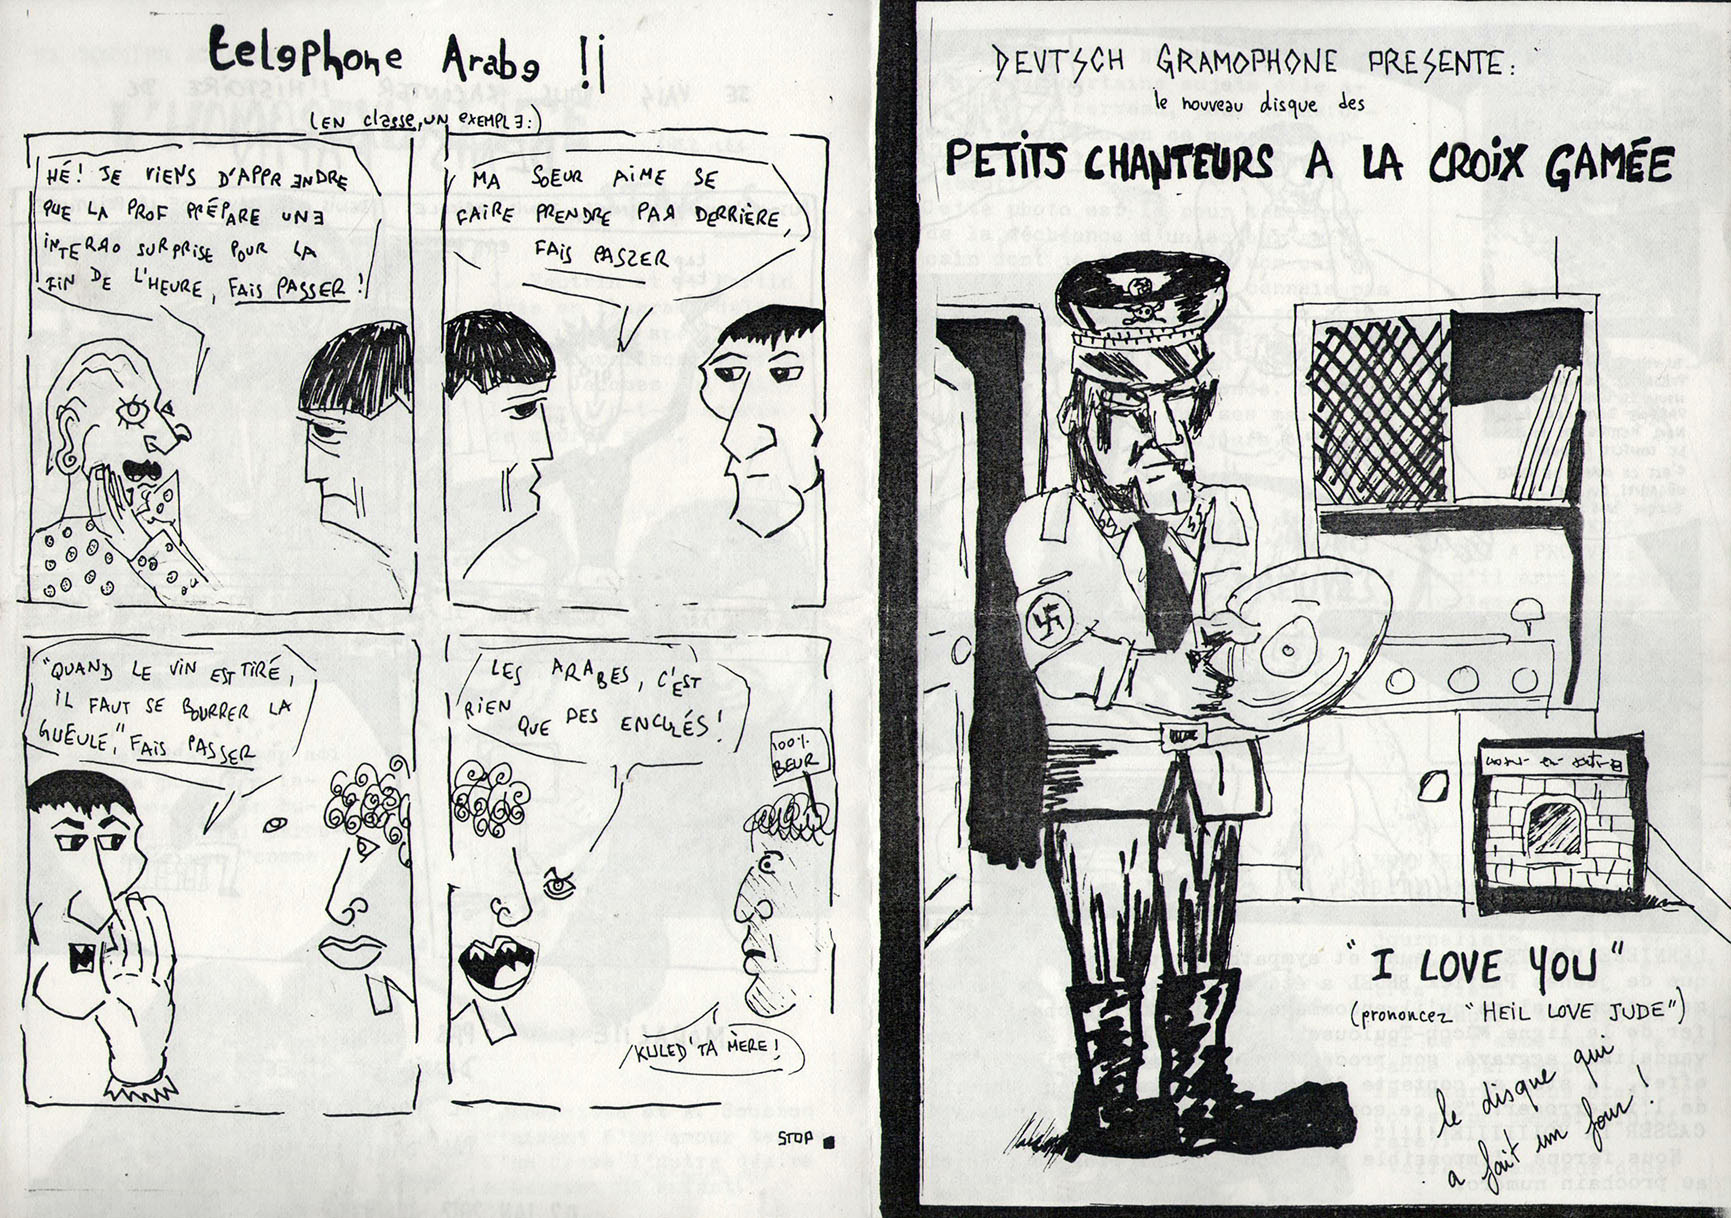 telephone Arabe !!
(EN classe, UN EXEMPLE:)
HÉ! JE VIENS D'APPRENDRE
QUE LA PROF PRÉPARE UNE
INTERRO SURPRISE POUR LA
FIN DE L'HEURE, FAIS PASSER !
MA SOEUR AIME SE
FAIRE PRENDRE PAR DERRIÈRE,
FAIS PASSER
"QUAND LE VIN EST TIRÉ,
IL FAUT SE BOURRER LA
GUEULE," FAIS PASSER
LES ARABES, C'EST
RIEN
QUE DES ENCULÉS !
100%
BEUR
KULED' TA MÈRE !
STOP
DEUTSCH GRAMOPHONE PRESENTE:
le nouveau disque des
PETITS CHANTEURS A LA CROIX GAMÉE
"I LOVE YOU"
(prononcez "HEIL LOVE JUDE")
le disque qui
a fait un four !